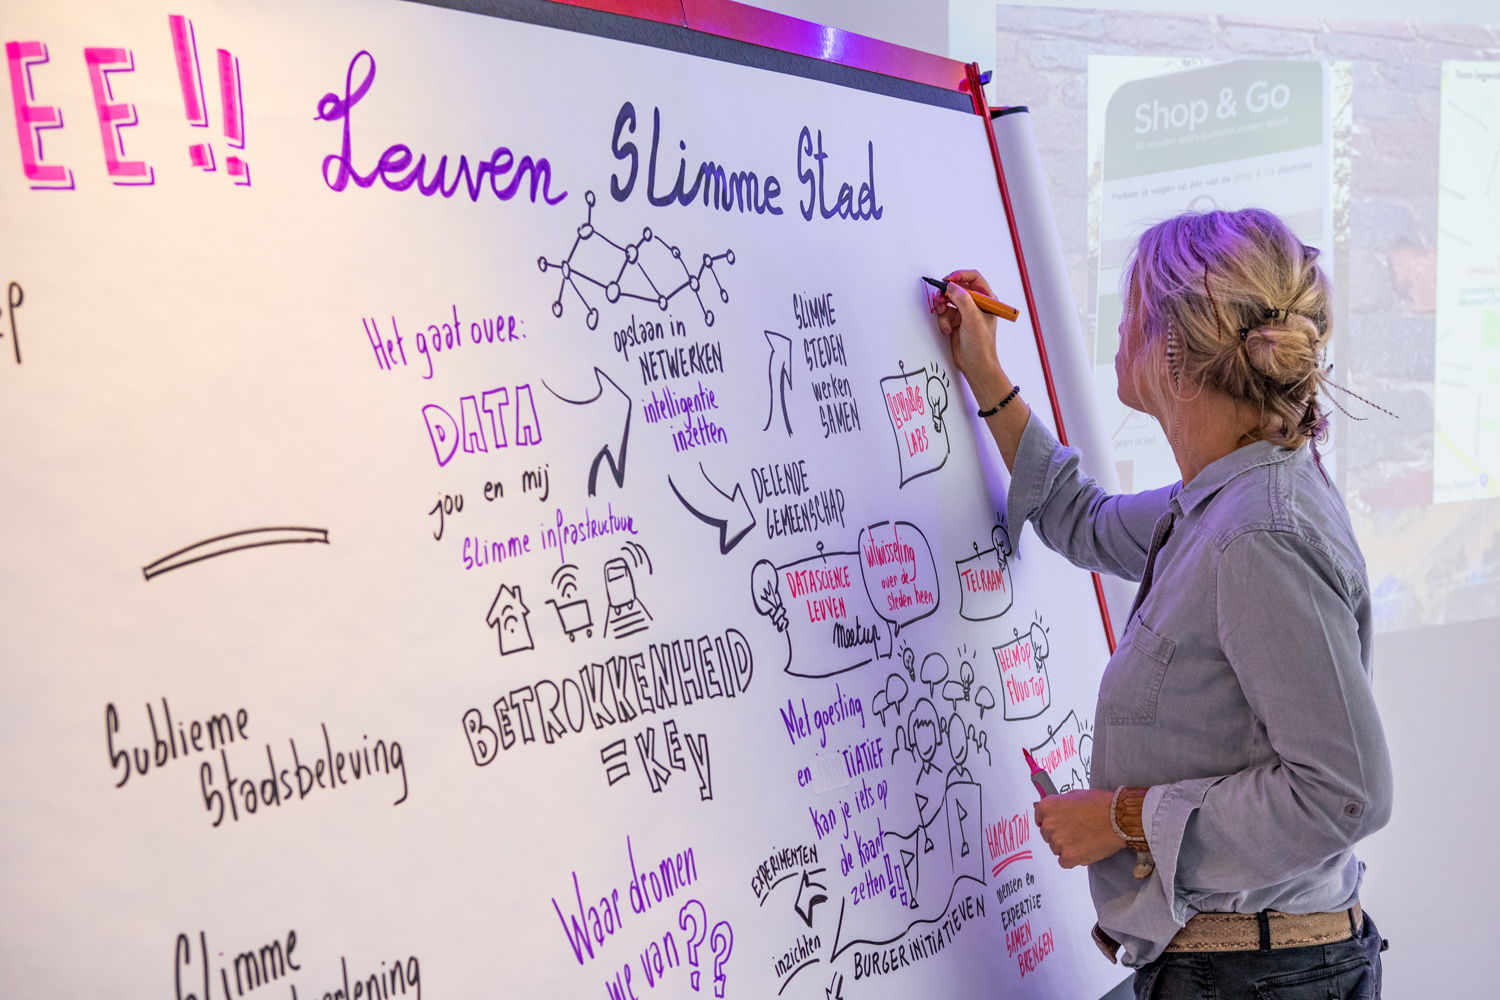 EE!!
Leuven Slimme Stad
Het gaat over:
DATA
jou en mij
Slimme infrastructuur
opslaan in
NETWERKEN
intelligentie
inzetten
SLIMME
STEDEN
werken
SAMEN
DELENDE
GEMEENSCHAP
LABS
DATASCIENCE
LEUVEN
meetup
uitwisseling
over de
steden heen
TELRAAM
BETROKKENHEID
= KEY
HELM OP
FLUO TOP
LEUVEN AIR
Met goesting
en INITIATIEF
Kan je iets op
de kaart
zetten!!
HACKATON
mensen en
EXPERTISE
SAMEN
BRENGEN
EXPERIMENTEN
inzichten
BURGERINITIATIEVEN
Sublieme
Stadsbeleving
Waar dromen
we van??
Slimme
Shop & Go
30 minuten gratis parkeren zonder ticket
Parkeer je wagen op één van de Shop & Go plaatsen
geen ticket